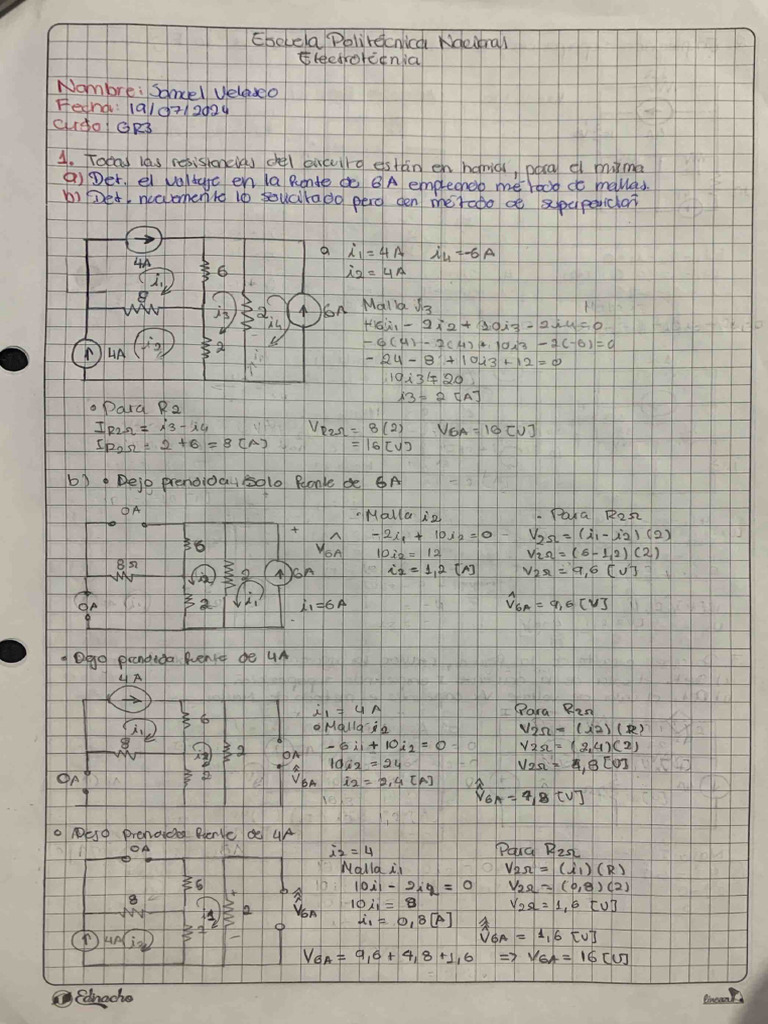 Escuela Politécnica Nacional
Electrotécnia
Nombre: Samuel Velasco
Fecha: 19/07/2024
Curso: GR3
1. Todas las resistancias del circuito están en homios, para el mismo
a) Det. el voltaje en la fuente de 6A empleando método de mallas.
b) Det. nuevamente lo solicitado pero con método de superposición
4A
i1
6
8
i3
2
i4
6A
4A
i2
2
a i1 = 4A i4 = -6A
i2 = 4A
Malla i3
-6i1 - 2i2 + 10i3 - 2i4 = 0
-6(4) - 2(4) + 10i3 - 2(-6) = 0
-24 - 8 + 10i3 + 12 = 0
10i3 = 20
i3 = 2 [A]
• Para R2
IR2Ω = i3 - i4
IR2Ω = 2 + 6 = 8 [A]
VR2Ω = 8(2) V6A = 16 [V]
= 16 [V]
b) • Dejo prendida solo fuente de 6A
0A
6
8Ω
i2
2
6A
0A
2
i1
+
V6A
i1 = 6A
- Malla i2
-2i1 + 10i2 = 0
10i2 = 12
i2 = 1,2 [A]
- Para R2Ω
V2Ω = (i1 - i2)(2)
V2Ω = (6 - 1,2)(2)
V2Ω = 9,6 [V]
V̂6A = 9,6 [V]
• Dejo prendida fuente de 4A
4A
i1
6
8
i2
2
2
0A
0A
V6A
i1 = 4A
• Malla i2
-6i1 + 10i2 = 0
10i2 = 24
i2 = 2,4 [A]
Para R2Ω
V2Ω = (i2)(R)
V2Ω = (2,4)(2)
V2Ω = 4,8 [V]
V6A = 4,8 [V]
• Dejo prendida fuente de 4A
0A
6
8
i1
2
4A
i2
2
+
-
V6A
i2 = 4
Malla i1
10i1 - 2i2 = 0
10i1 = 8
i1 = 0,8 [A]
Para R2Ω
V2Ω = (i1)(R)
V2Ω = (0,8)(2)
V2Ω = 1,6 [V]
V6A = 1,6 [V]
V6A = 9,6 + 4,8 + 1,6 => V6A = 16 [V]
Ednacho